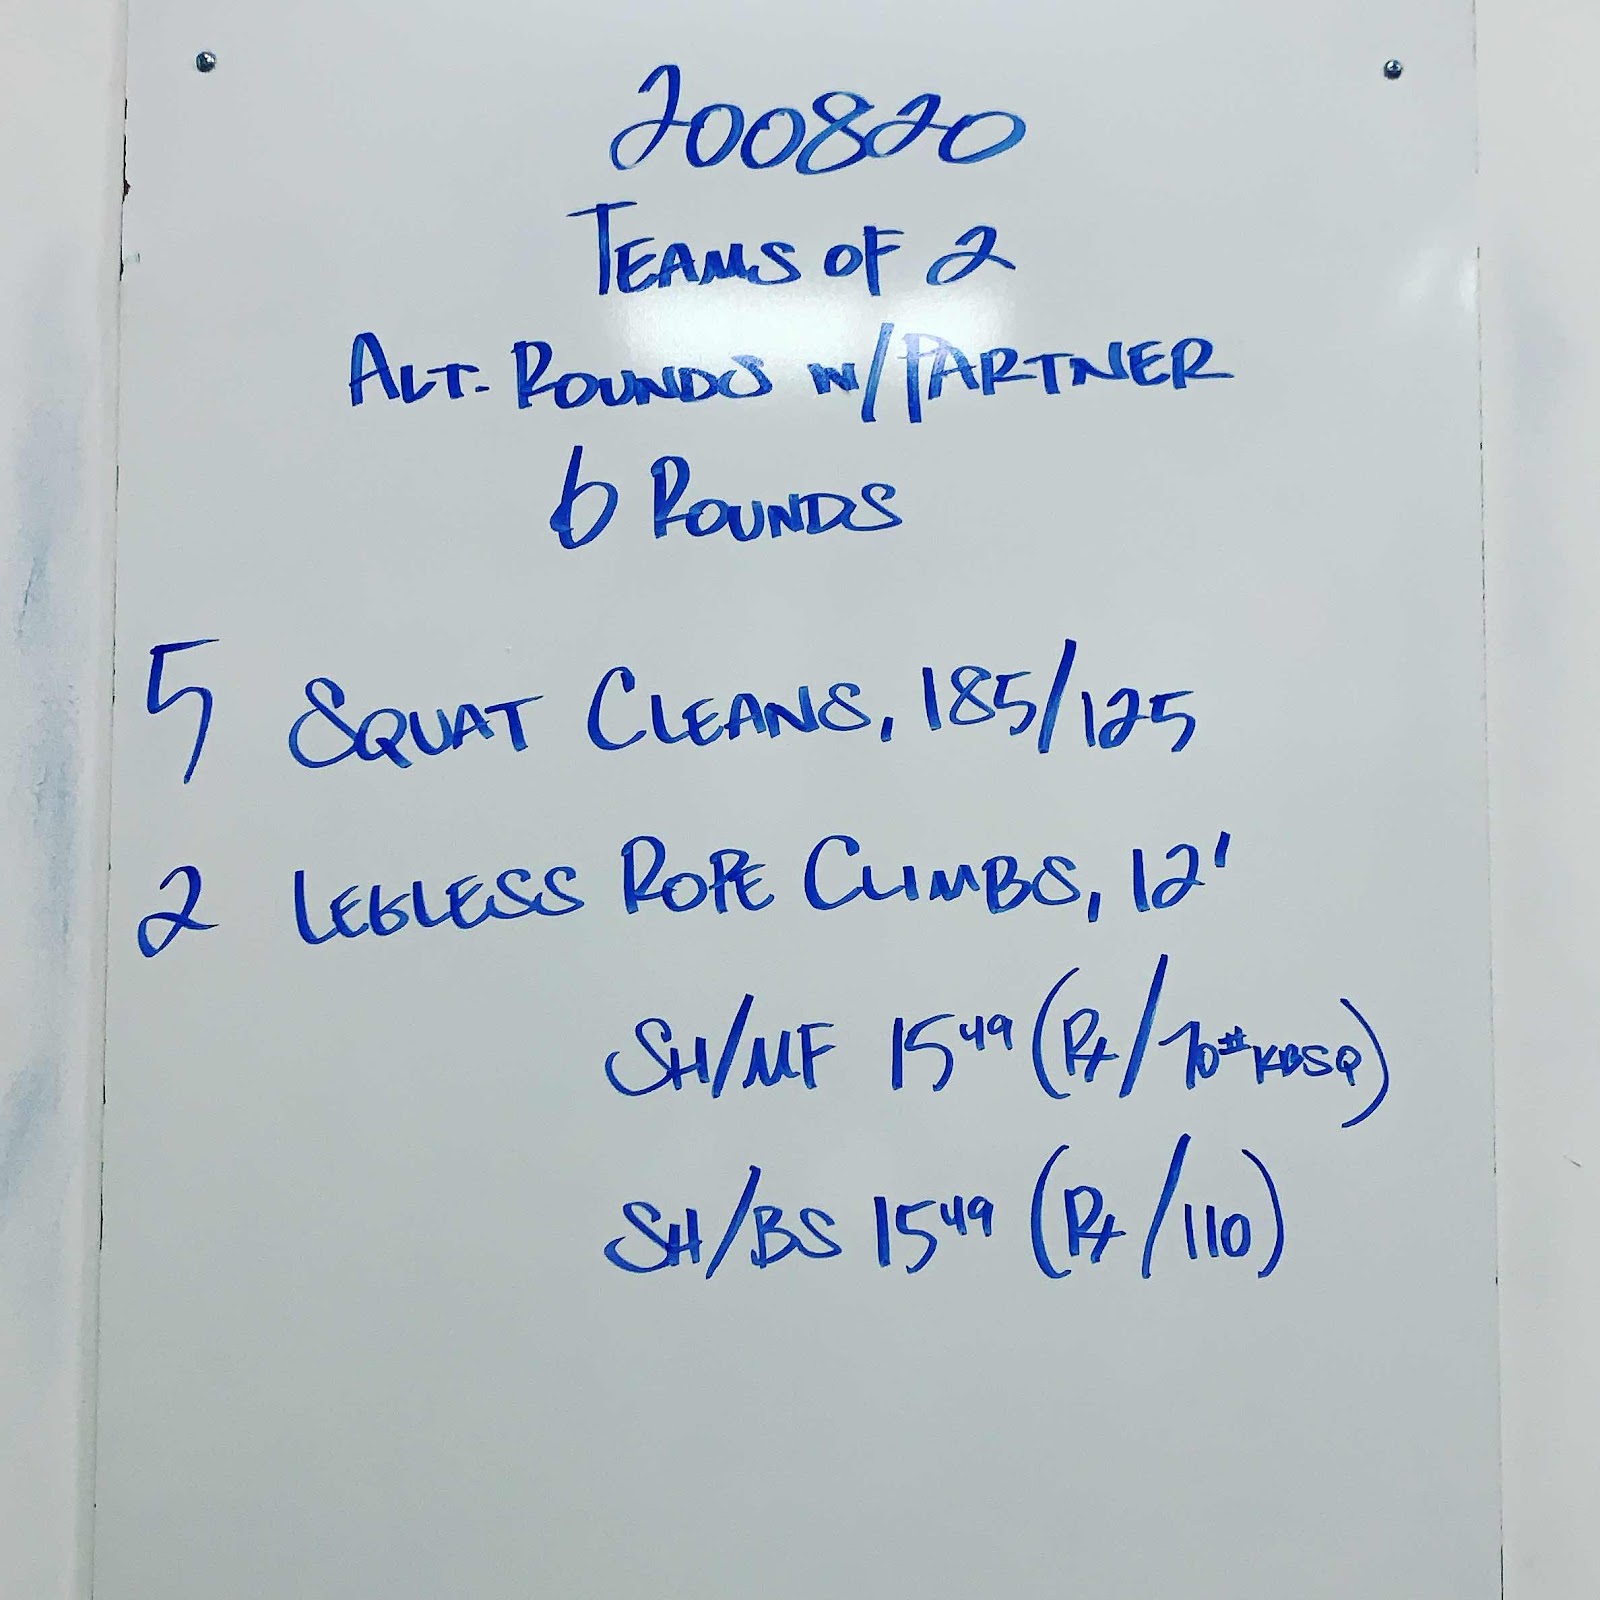 200820
TEAMS OF 2
ALT. ROUNDS W/PARTNER
6 ROUNDS
5 SQUAT CLEANS, 185/125
2 LEGLESS ROPE CLIMBS, 12'
SH/MF 1549 (Rx/70# KBSQ)
SH/BS 1549 (Rx/110)